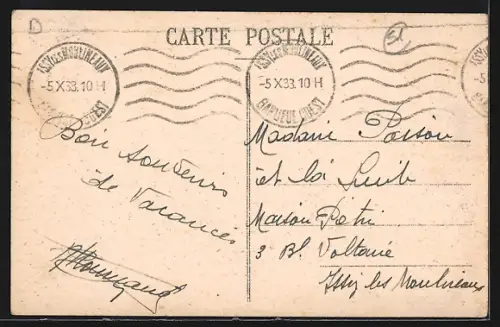 D
CARTE POSTALE
El
ISSY LES MOULINEAUX
-5 X 33.10 H
ISSY LES MOULINEAUX
-5 X 33.10 H
BANLIEUE OUEST
-5
Bon souvenir
de Vacances
Madame Poisson
et la Suite
Maison Pétri
3 Bd Voltaire
Issy les Moulineaux